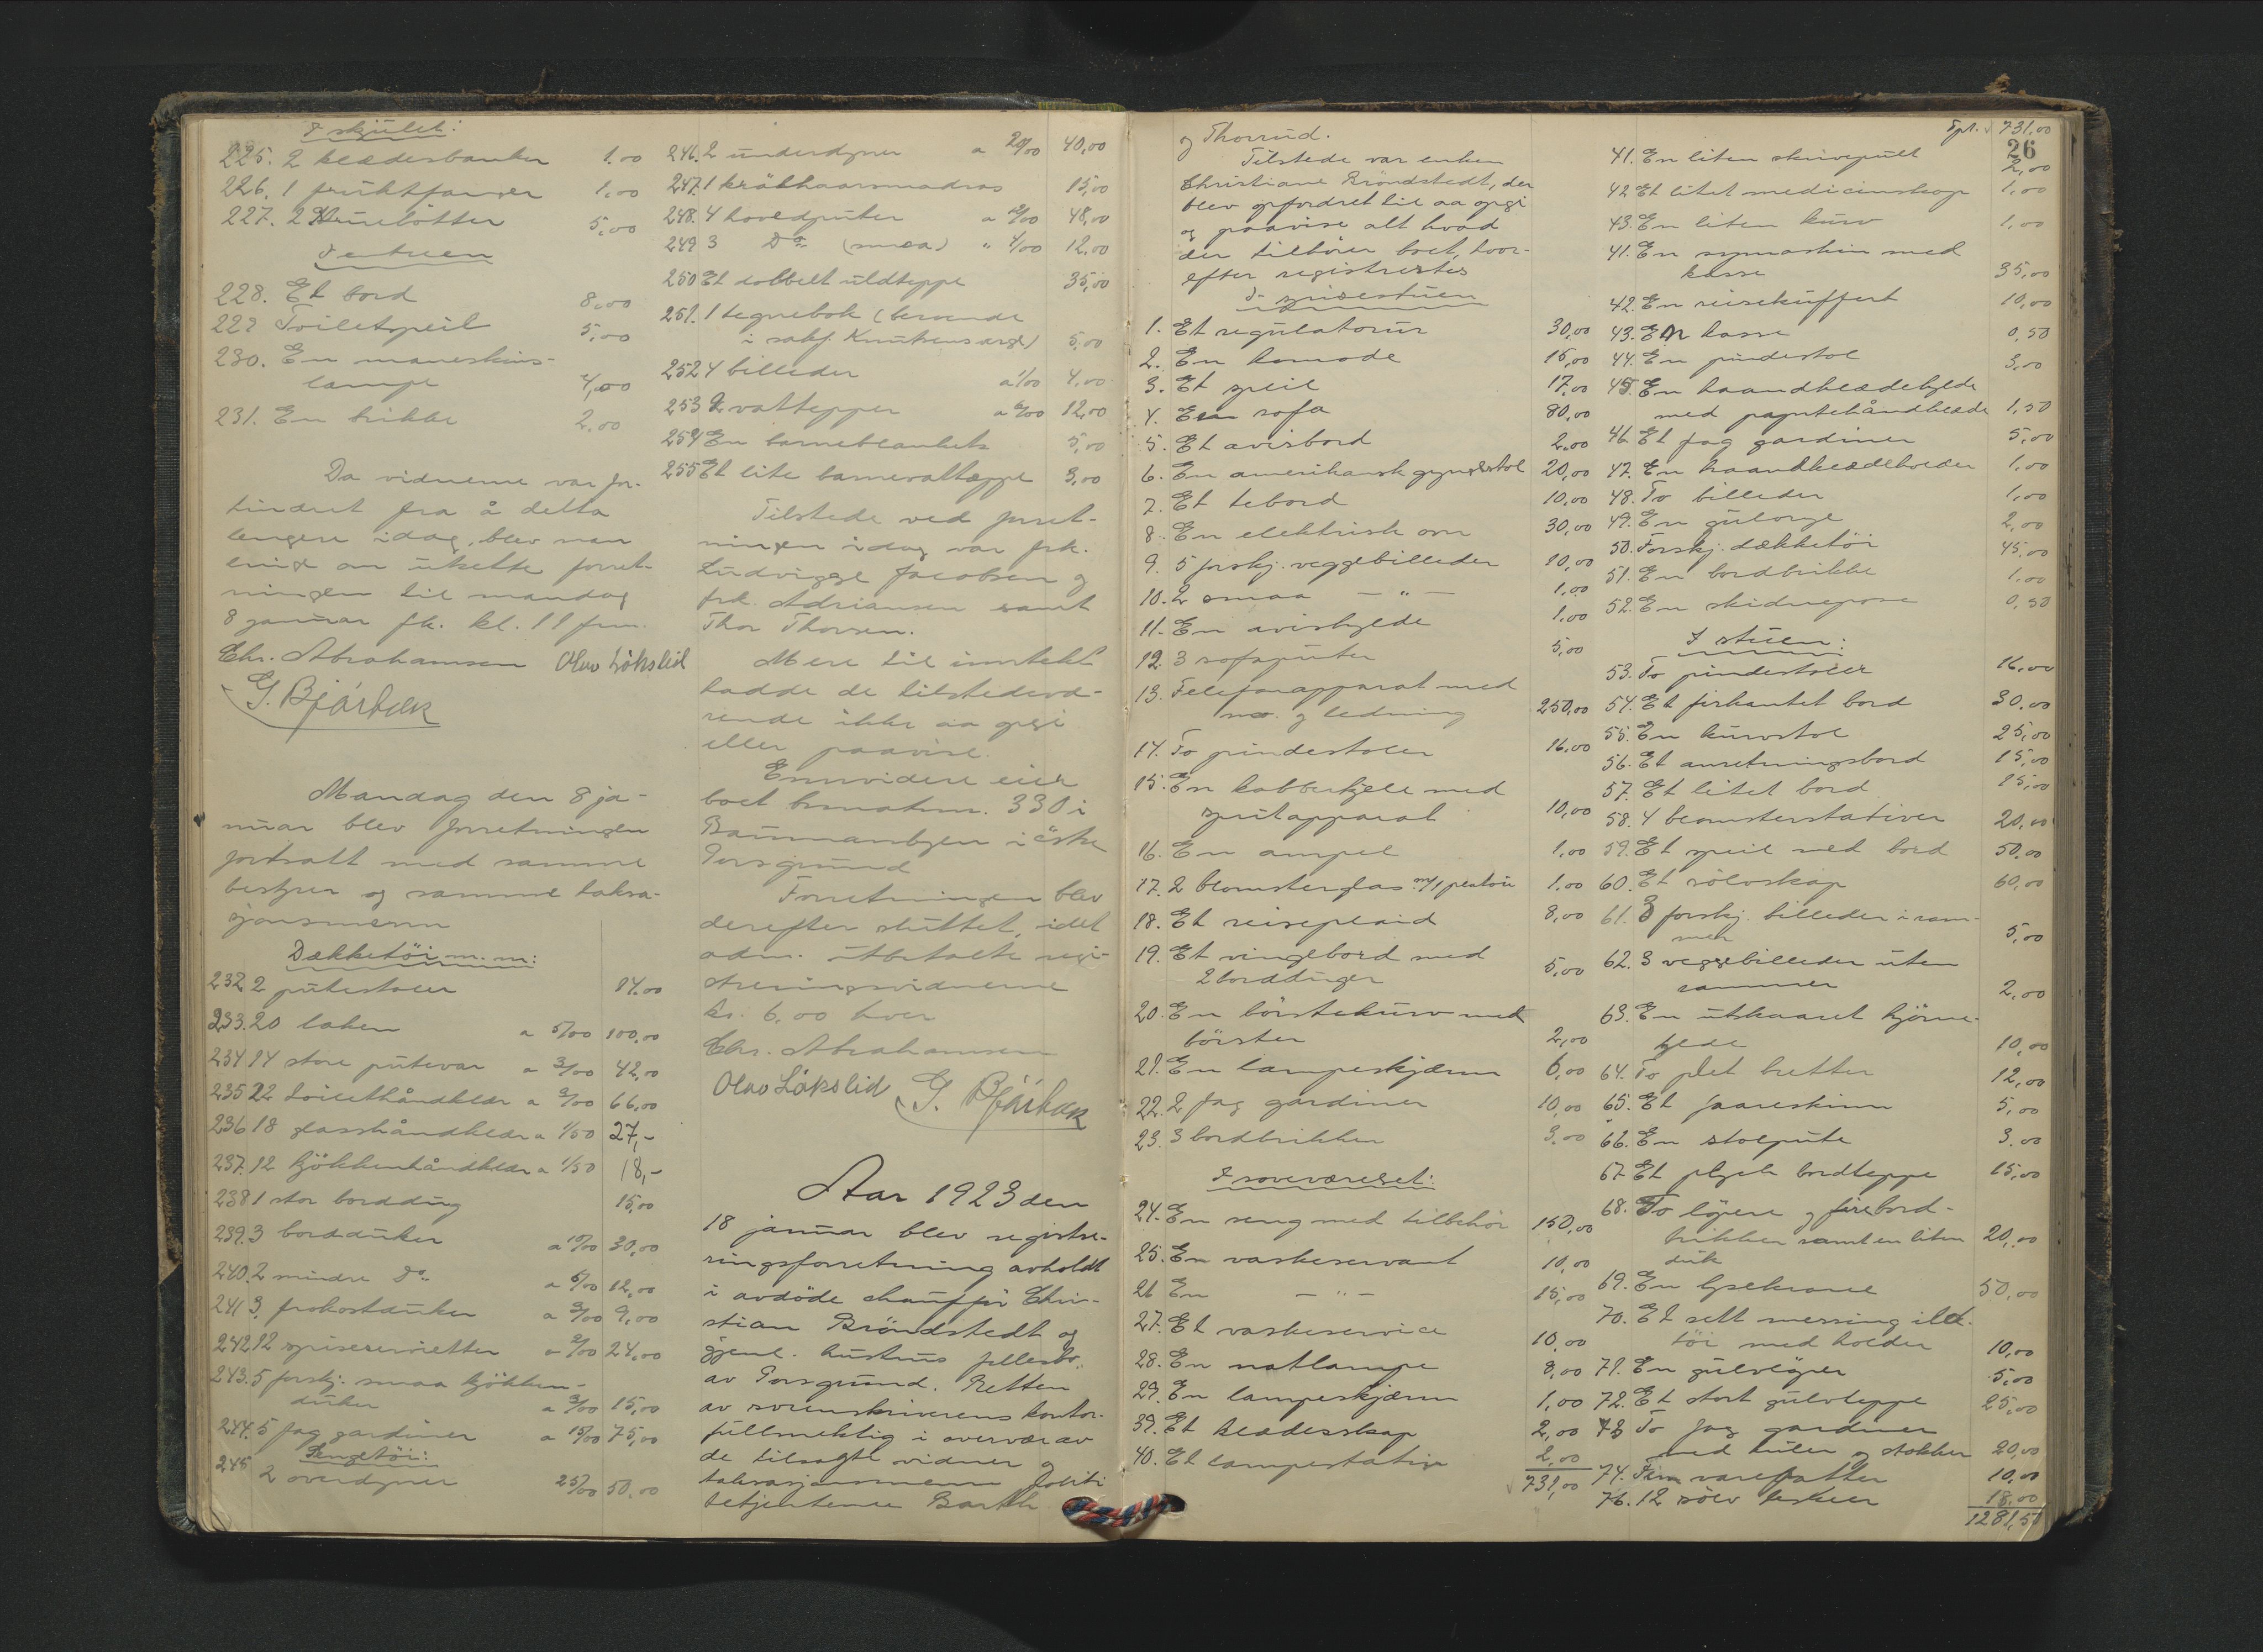 I skjulet:
225. 2 klædesbanker 1.00
226. 1 fruktfanger 1.00
227. 2 Struebøtter 5,00
I stuen
228. Et bord 8,00
229 Toiletspeil 5,00
230. En maneskins-
lampe 4,00
231. En brikke 2,00
Da vidnerne var for-
hindret fra å delta
lengere idag, blev man
enige om utsette forret-
ningen til mandag
8 januar fk. kl. 11 fm.
Chr. Abrahamsen Olav Løkslid
G. Bjårbæk
Mandag den 8 ja-
nuar blev forretningen
fortsatt med samme
bestyrer og samme taksa-
sjonsmenn
Dækketøi m. m:
232 2 putestoler 14.00
233. 20 laken a 5/00 100,00
234 14 store putevar a 3/00 42,00
235 22 toiletthåndklær a 3/00 66,00
236 18 glasshåndklær a 1/50 27,-
237. 12 kjøkkenhåndklær a 1/50 18,-
238 1 stor borddug 15,00
239. 3 bordduker a 10/00 30,00
240. 2 mindre do. a 6/00 12,00
241 3. frokostduker a 3/00 9,00
242 12 spiseservietter a 2/00 24,00
243. 5 forskj. smaa kjøkken-
duker a 3/00 15,00
244. 5 fag gardiner a 15/00 75,00
Sengetøi:
245 2 overdyner 25/00 50.00
246. 2 underdyner a 20/00 40,00
247. 1 krølhaarsmadras 15,00
248. 4 hovedputer a 12/00 48,00
249 3 Do (smaa) " 4/00 12,00
250 Et dobbelt uldteppe 35,00
251. 1 tegnebok (beroende
i sakf. Knutsens 5,00
252 4 billeder a 1/00 4,00
253 2 vattepper a 6/00 12,00
254 En barneblankets 5,00
255 Et lite barnevatteppe 3,00
Tilstede ved forret-
ningen idag var frk.
Ludvigge Jacobsen og
frk. Adriansen samt
Thor Thorsen.
Mere til inntekt
hadde de tilstedevæ-
rende ikke aa opgi
eller paavise.
Ennvidere eier
boet brmatnr. 330 i
i østre
Porsgrund
Forretningen blev
derefter sluttet, idet
adm. utbetalte regi-
streringsvidnerne
kr. 6,00 hver
Chr. Abrahamsen
Olav Løkslid G. Bjårbæk
Aar 1923 den
18 januar blev registre-
ringsforretning avholdt
i avdøde chauffør Chri-
stian Brøndstedt og
gjenl. hustrus fellesbo.
av Porsgrund. Retten
av sorenskriverens kontor-
fullmektig i overvær av
de tilsagte vidner og
taksasjonsmenn politi
betjentene Barth
og Thorsrud.
Tilstede var enken
Christiane Brøndstedt, der
blev opfordret til aa opgi
og paavise alt hvad
der tilhører boet, hvor-
efter registrertes
I spisestuen
1. Et regulatorur 30,00
2. En komode 15,00
3. Et speil 17,00
4. En sofa 80,00
5. Et avisbord 2,00
6. En amerikansk gyngestol 20,00
7. Et tebord 10,00
8. En elektrisk ovn 30,00
9. 5 forskj. veggebilleder 10,00
10. 2 smaa — " — 1,00
11. En avishylde 1,00
12. 3 sofaputer 5,00
13. Telefonapparat med
no. og ledning 250,00
14. To pindestoler 16,00
15. En kobberkjele med
spritapparat 10,00
16. En ampel 1,00
17. 2 blomsterglas m/1 platou 1,00
18. Et reisepleid 8,00
19. Et vingebord med
2 bordduger 5,00
20. En børstekurv med
børster 2,00
21. En lampeskjærm 6,00
22. 2 fag gardiner 10,00
23. 3 bordbrikker 3.00
I soveværelset:
24. En seng med tilbehør 150,00
25. En vaskeservant 10,00
26 En — " — 15,00
27. Et vaskeservice 10,00
28. En natlampe 8,00
29. En lampeskjærm 1,00
39. Et klædesskap 2,00
40. Et lampestativ 2,00
731,00
Fpt. 731,00
26
41. En liten skrivepult 2,00
42 Et litet medicinskap 1,00
43. En liten kurv 1,00
41. En symaskin med
kasse 35,00
42. En reisekuffert 10,00
43. En kasse 0,50
44. En pindestol 3,00
45. En haandklædehylde
med pyntehåndklæde 1,50
46. Et fag gardiner 5,00
47. En haandklædeholder 1,00
48. To billeder 1,00
49. En gulorge 2,00
50. Forskj. dækketøi 45,00
51. En bordbrikke 1,00
52. En skidnepose 0,50
I stuen:
53. To pindestoler 16.00
54. Et firkantet bord 30.00
55. En kurvstol 25,00
56. Et anretningsbord 15,00
57. Et litet bord 15,00
58. 4 blomsterstativer 20,00
59. Et speil med bord 50.00
60. Et sølvskap 60,00
61. 3 forskj. billeder i ram-
mer 5,00
62. 3 veggebilleder uten
rammer 2,00
63. En utskaaret hjørne-
hylde 10,00
64. To plet bretter 12,00
65. Et faareskinn 5,00
66. En stolpute 3.00
67. Et plysch bordteppe 15,00
68. To løpere og fire bord-
brikker samt en liten 20,00
duk
69. En lysekrone 50,00
70. Et sett messing ild-
tøi med holder 10,00
71. En gulvløper 5,00
72. Et stort gulvteppe 25,00
73 To fag gardiner
med luter og stokker 20,00
74. Fem varefatter 10.00
76. 12 sølv teskeer 18,00
1281,50